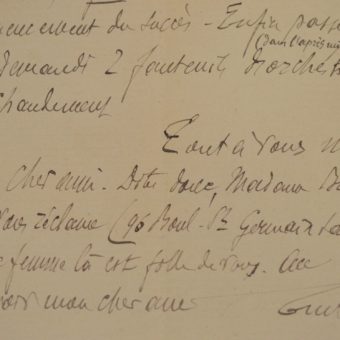 cement du succès - Enfin passe
(dans l'après mi
demandé 2 fauteuils d'orchest
chaudement
Tout à vous
cher ami. Dites donc, Madame
vous réclame (96 Boul. St Germain
femme là est folle de vous. Au
mon cher ami